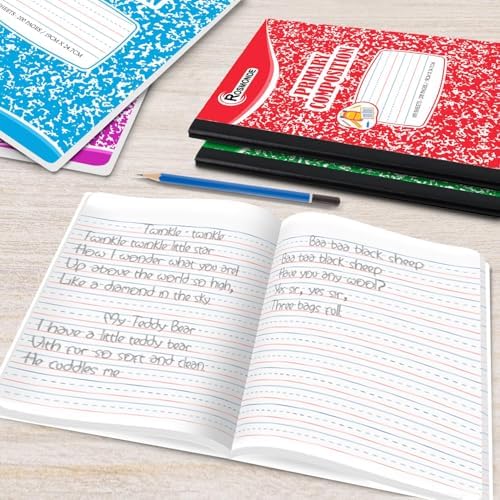 SHEETS · 200 PAGES / 19CM X 24.7CM
ROSMONDE
PRIMARY
COMPOSITION
Twinkle - twinkle
Twinkle twinkle little star
How I wonder what you are!
Up above the world so hah,
Like a diamond in the sky
My Teddy Bear
I have a little teddy bear
Uith fur so sort and clean.
He cuddles me
Baa baa black sheep
Baa baa black sheep
Have you any wool?
Yes sir, yes sir,
Three bags full.